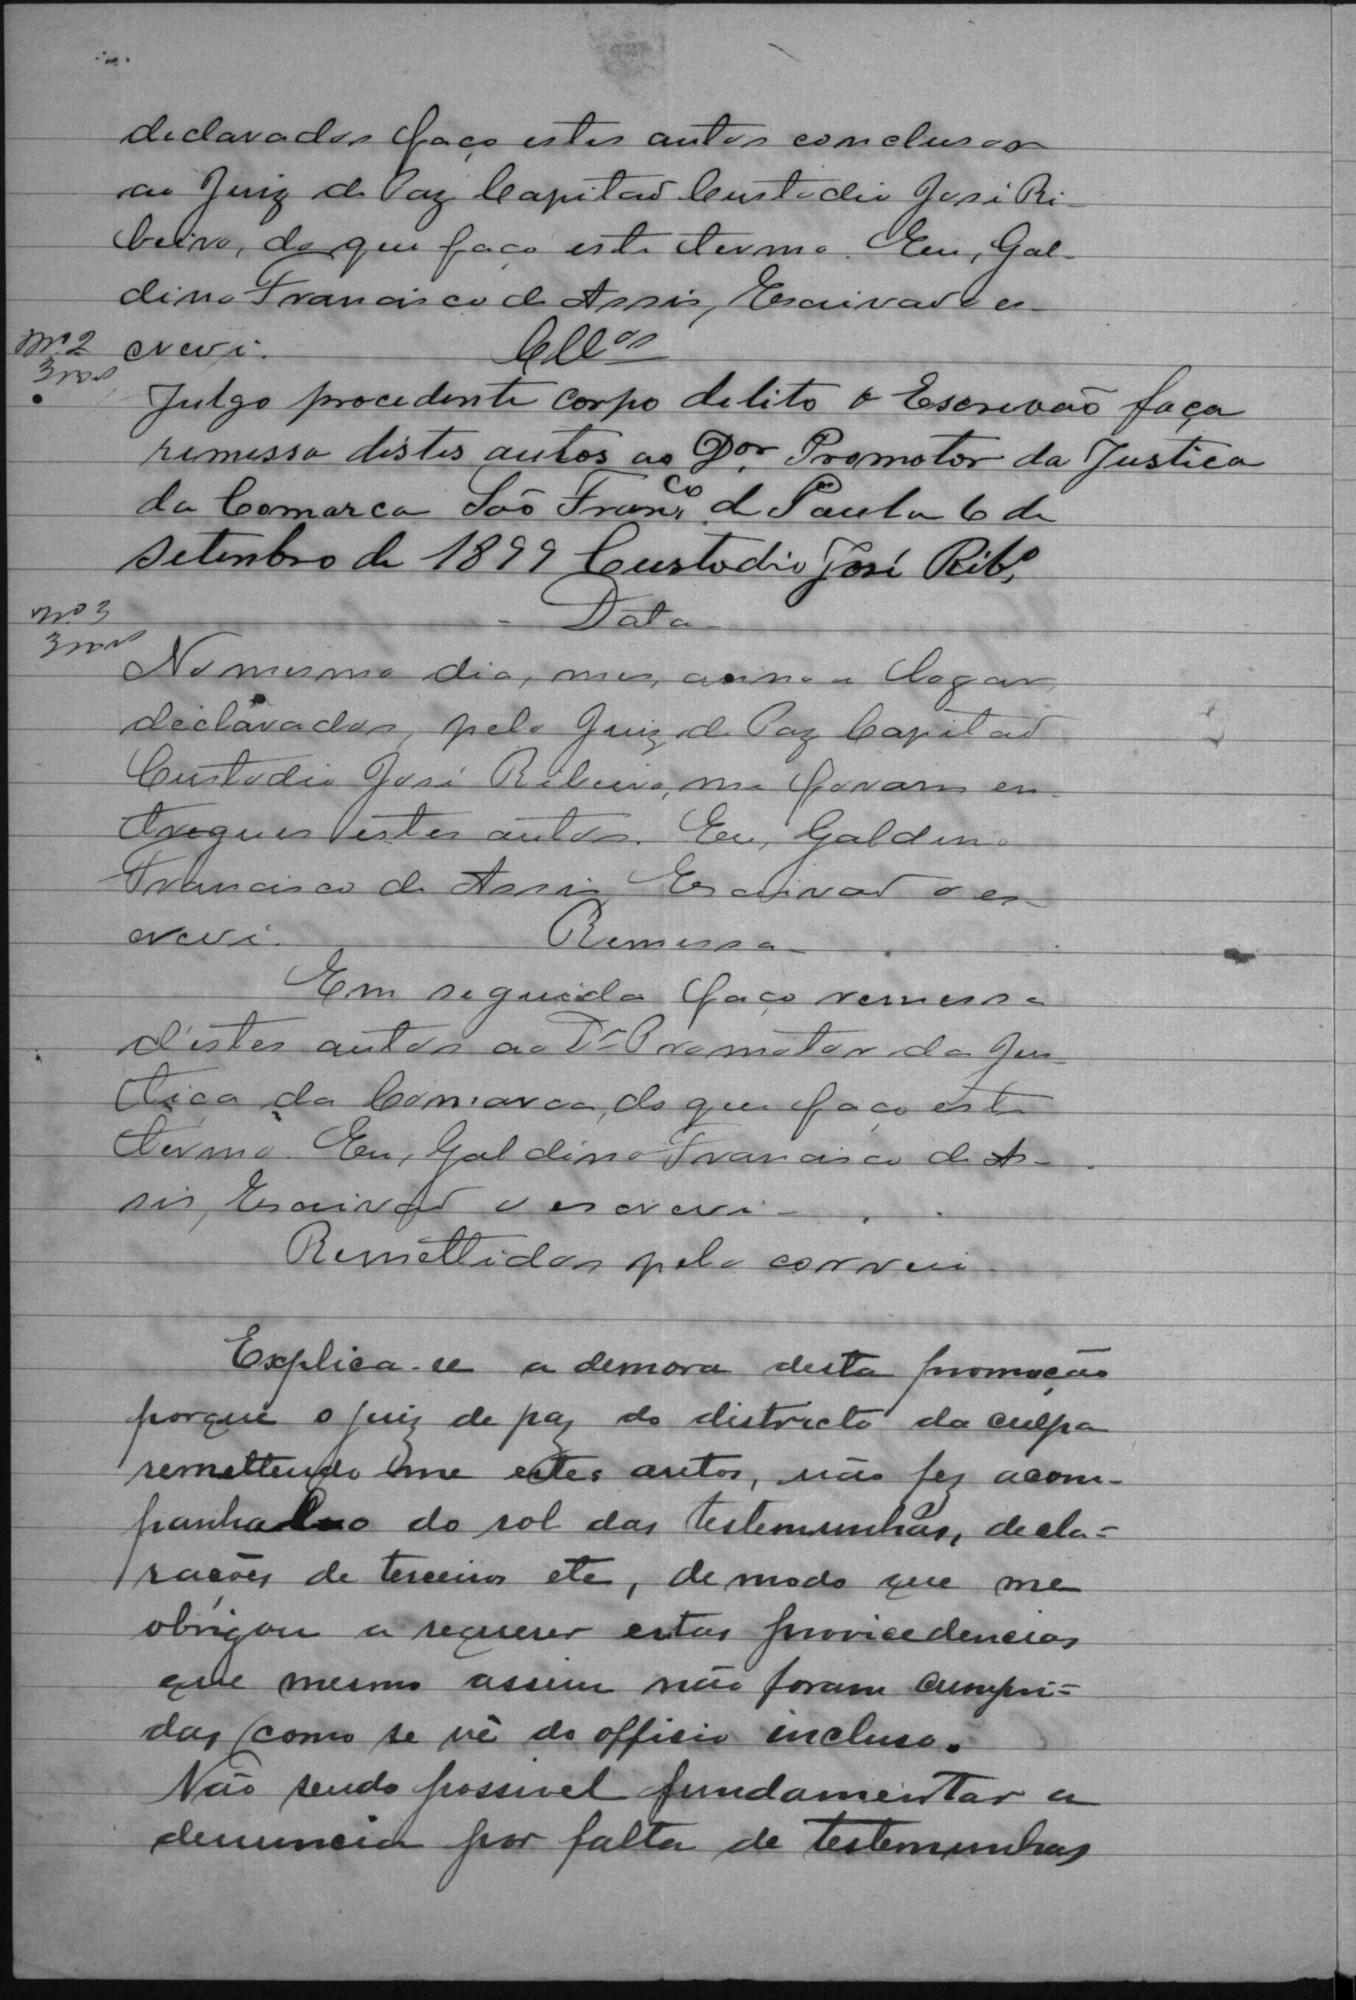 declarados faço estes autos conclusos
ao Juiz de Paz Capitaõ Custodio José Ri-
beiro, do que faço este termo. Eu, Gal-
dino Francisco de Assis, Escrivaõ o es-
crevi. Cllos
Nº 2
3
Julgo procedente corpo delito o Escrevão faça
remessa distes autos ao Dor. Promotor da Justica
da Comarca São Franco. de Paula 6 de
setenbro de 1899 Custodio José Ribº.
Nº 3
3
- Data -
No mesmo dia, mes, anno e logar
declarados, pelo Juiz de Paz Capitaõ
Custodio José Ribeiro, me foram en-
tregues estes autos. Eu, Galdino
Francisco de Assis, Escrivaõ o es-
crevi. Remessa -
Em seguida faço remessa
d'estes autos ao Dr Promotor da Jus-
tiça da Comarca, do que faço este
termo. Eu, Galdino Francisco de As-
sis, Escrivaõ o escrevi -
Remettidos pelo correio.
Explica-se a demora desta promoção
porque o juiz de paz do districto da culpa
remettendo me estes autos, não fez acom-
panhal-o do rol das testemunhas, decla=
rações de terceiros etc, de modo que me
obrigou a requerer estas provicedencias
que mesmo assim não foram cumpri=
das como se vê do officio incluso.
Não sendo possivel fundamentar a
denuncia por falta de testemunhas